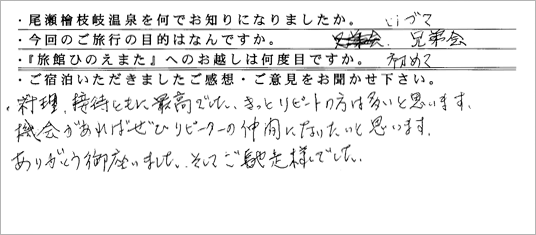 ・尾瀬檜枝岐温泉を何でお知りになりましたか。
・今回のご旅行の目的はなんですか。 兄弟会
・『旅館ひのえまた』へのお越しは何度目ですか。 初めて
・ご宿泊いただきましたご感想・ご意見をお聞かせ下さい。
・料理、接待ともに最高でした、きっとリピートの方は多いと思います。
機会があればぜひリピーターの仲間になりたいと思います。
ありがとう御座いました。そしてご馳走様でした。